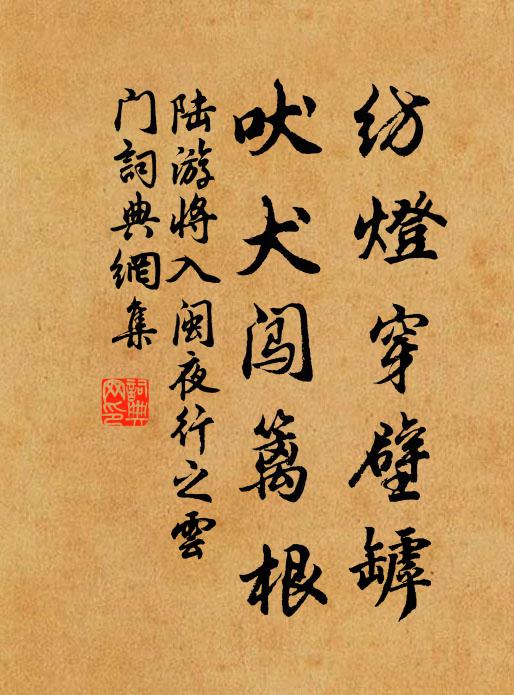 纺燈穿壁罅
吠犬闯篱根
陆游将入闽夜行之雲
门詞典網集
詞典網印